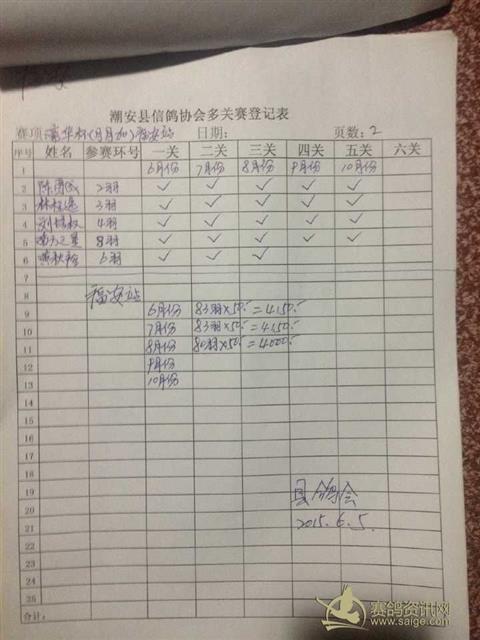 潮安县信鸽协会多关赛登记表
杯(月月加)福安站 日期: 页数: 2
序号 姓名 参赛环号 一关 二关 三关 四关 五关 六关
1 6月份 7月份 8月份 9月份 10月份
2 2羽 ✓ ✓ ✓ ✓ ✓
3 林 3羽 ✓ ✓ ✓ ✓ ✓
4 刘 权 4羽 ✓ ✓ ✓ ✓ ✓
5 之星 8羽 ✓ ✓ ✓ ✓ ✓
6 6羽 ✓ ✓ ✓
7
8 福安站
9 6月份 83羽×50.- = 4150.-
10 7月份 83羽×50.- = 4150.-
11 8月份 80羽×50.- = 4000.-
12 9月份
13 10月份
14
15
16
17
18
19 县鸽会
20
21 2015.6.5.
22
23
24
25
合计:
赛鸽资讯网
www.saige.com